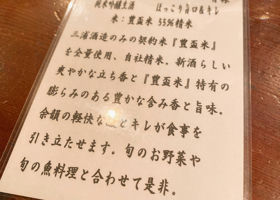 純米吟醸生酒 ほっこり旨口&キレ
米：豊盃米 55%精米
三浦酒造のみの契約米『豊盃米』
を全量使用、自社精米。新酒らしい
爽やかな立ち香と『豊盃米』特有の
膨らみのある豊かな含み香と旨味。
余韻の軽快な キレが食事を
引き立たせます。旬のお野菜や
旬の魚料理と合わせて是非。